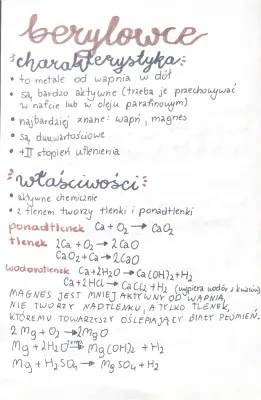 berylowce
charakterystyka:
• to metale od wapnia w dół
• są bardzo aktywne (trzeba je przechowywać
w nafcie lub w oleju parafinowym)
• najbardziej znane: wapń, magnes
• są dwuwartościowe
• +II stopień utlenienia
właściwości:
• aktywne chemicznie
• z tlenem tworzy tlenki i ponadtlenki
ponadtlenek Ca + O₂ → CaO₂
tlenek 2Ca + O₂ → 2CaO
CaO₂ + Ca → 2CaO
wodorotlenek Ca + 2H₂O → Ca(OH)₂ + H₂
Ca + 2HCl → CaCl₂ + H₂ (wypiera wodór z kwasów)
MAGNES JEST MNIEJ AKTYWNY OD WAPNIA,
NIE TWORZY NADTLENKU, A TYLKO TLENEK,
KTÓREMU TOWARZYSZY OŚLEPIAJĄCY BIAŁY PŁOMIEŃ.
2Mg + O₂ → 2MgO
Mg + 2H₂O → Mg(OH)₂ + H₂
Mg + H₂SO₄ → MgSO₄ + H₂